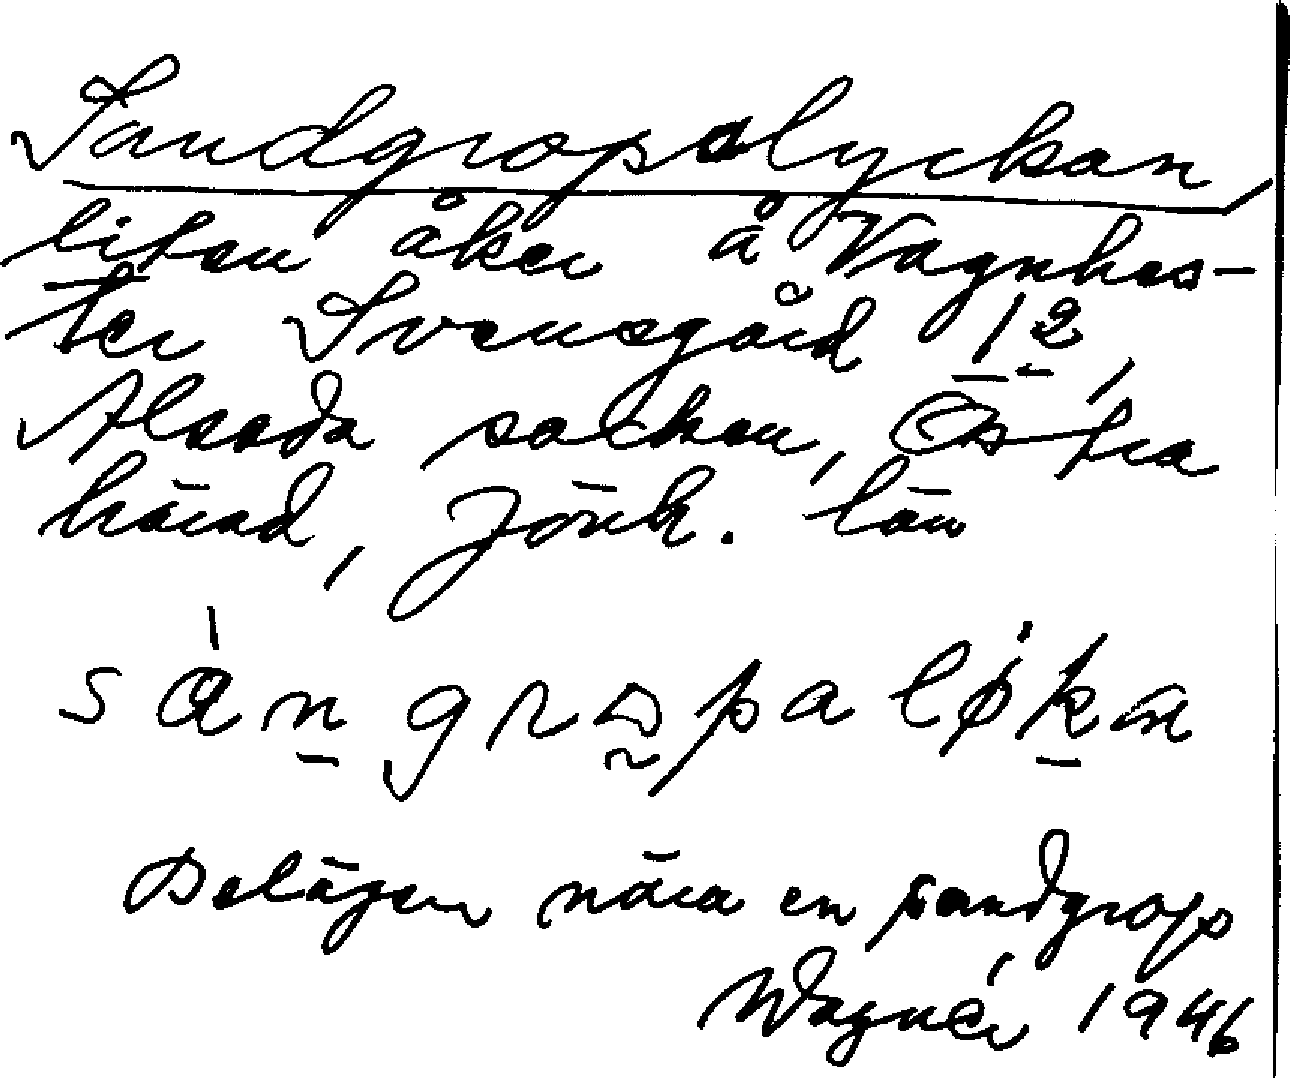 Sandgropalyckan,
liten åker å Vagnhes-
ter Svensgård 1 2,
Alseda socken, Östra
härad, Jönk. län
sa̍n̠ grɷ̰pa lø̍k̠a
Belägen nära en sandgrop
Wagnér 1946